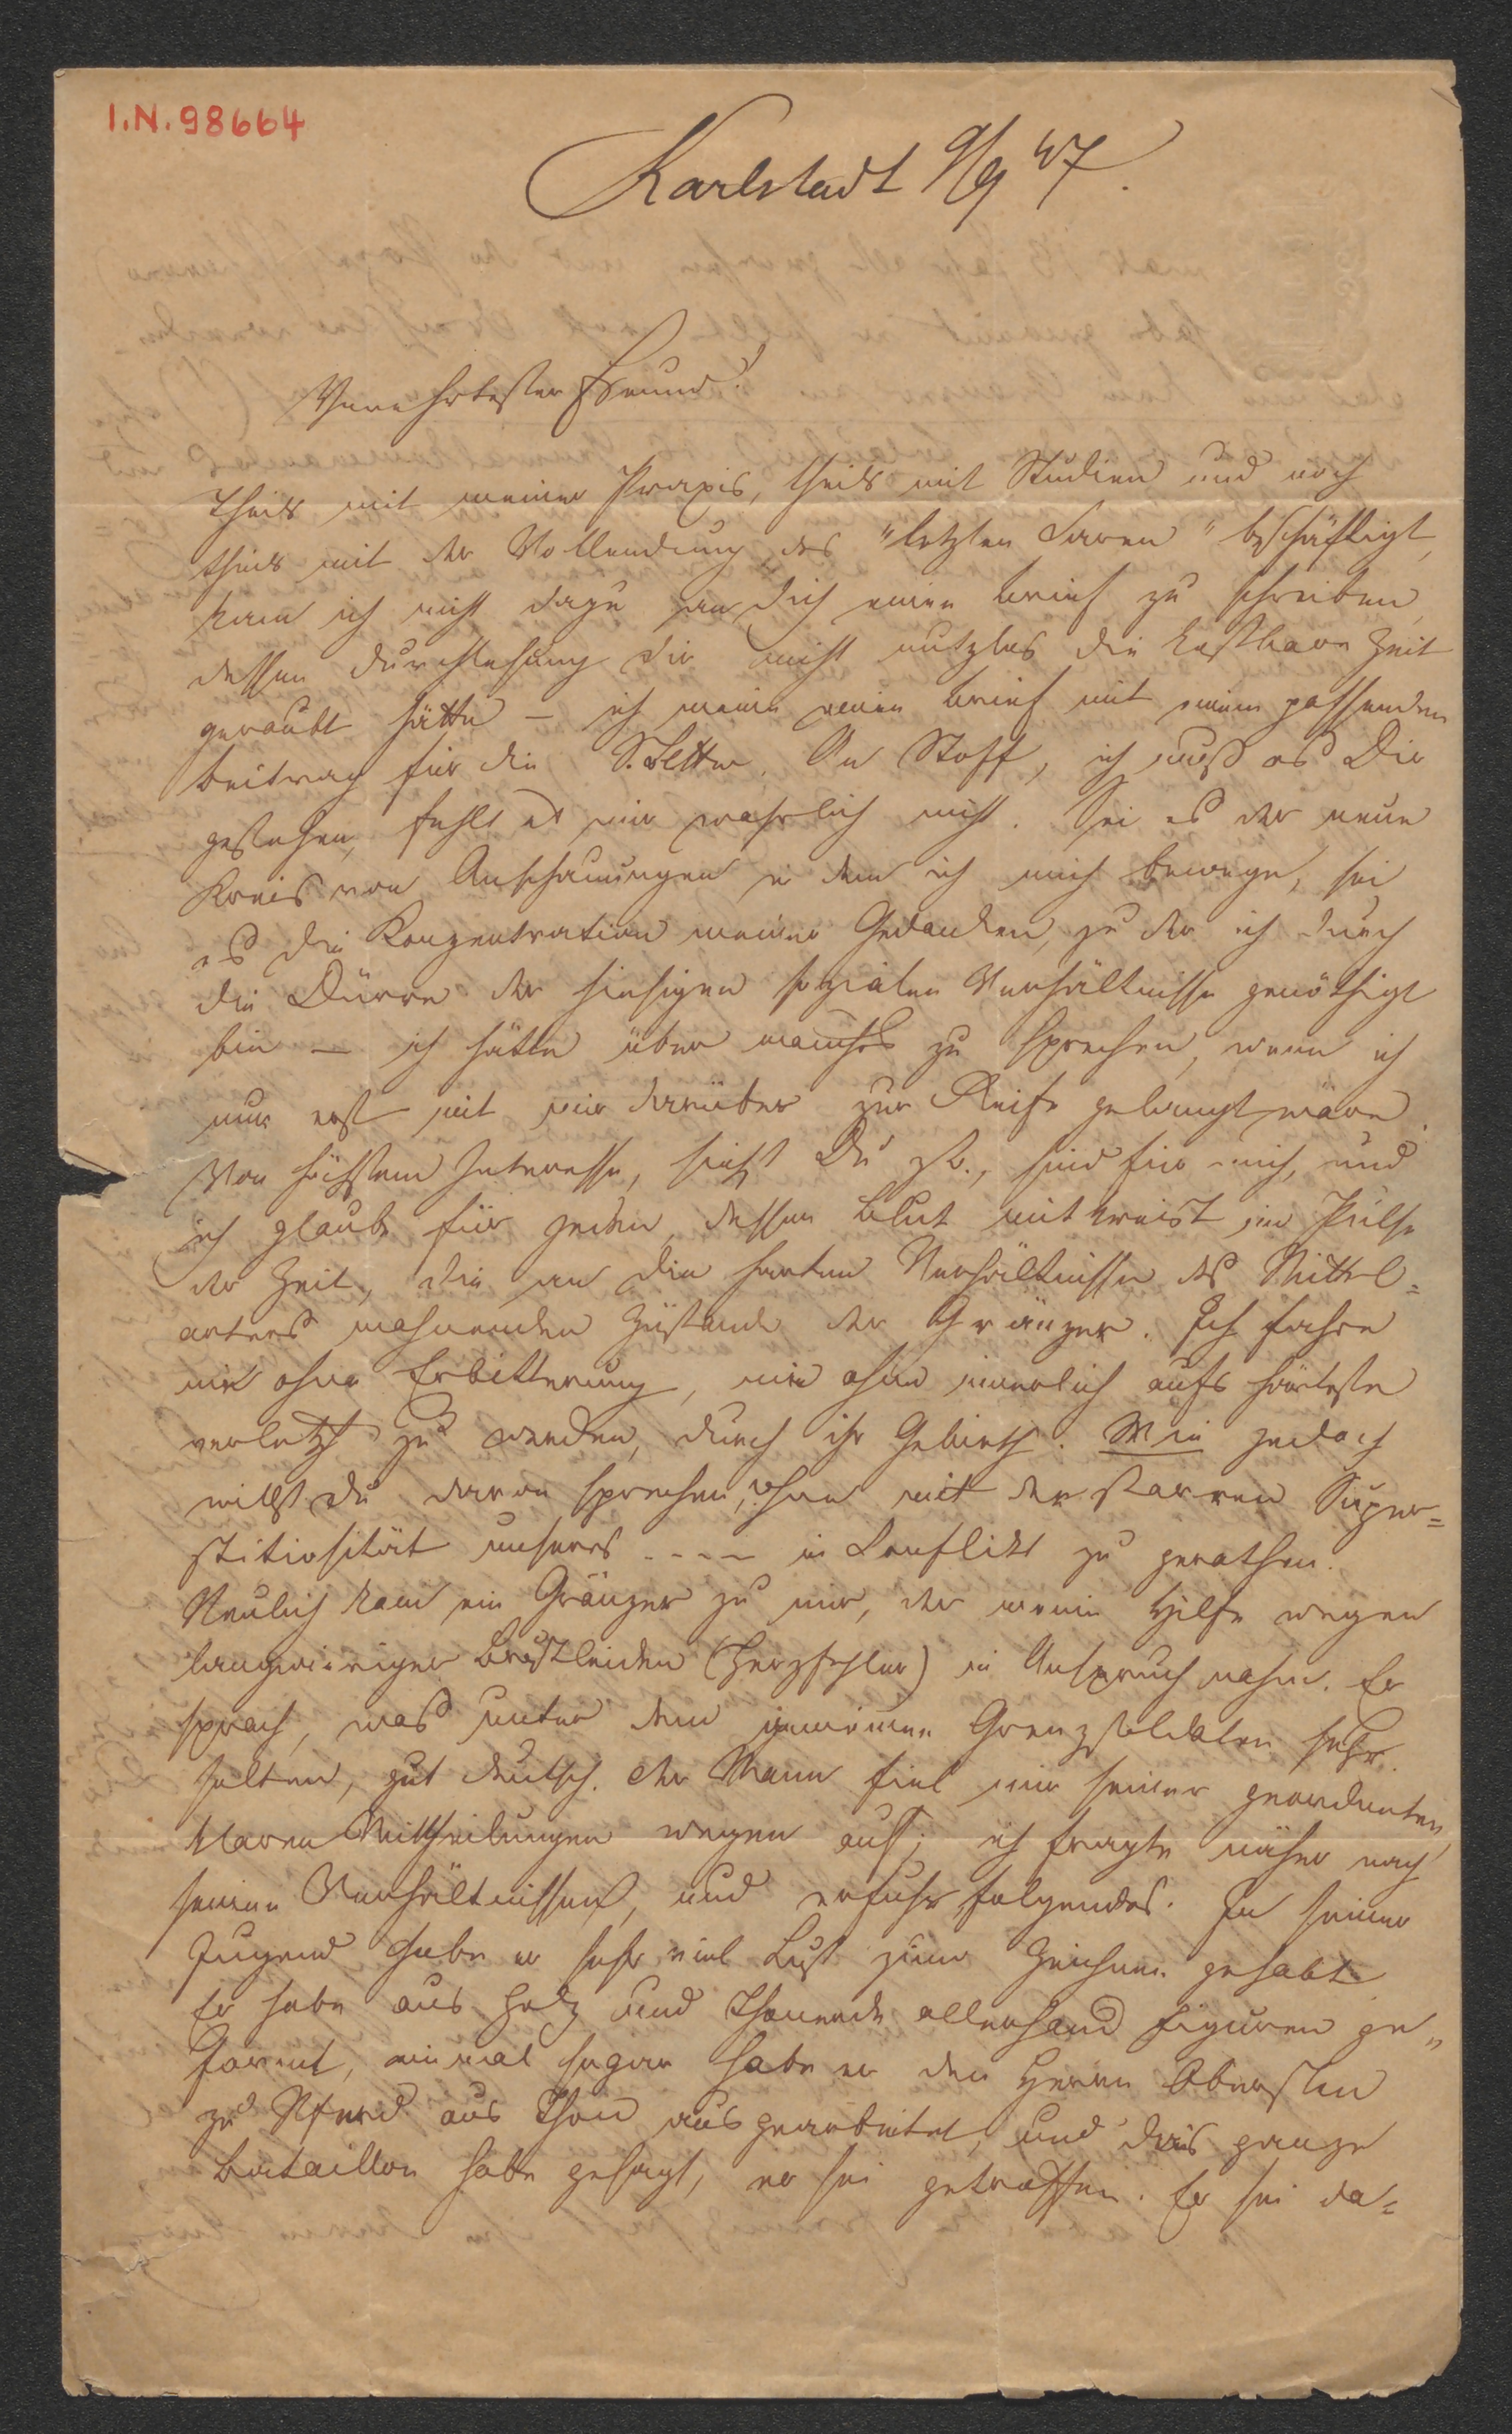 I.N. 98664
Karlstadt 9/9 47.
Verehrtester Freund!
Theils mit meiner Praxis, theils mit Studien und noch
theils mit der Vollendung des "letzten Zaren" beschäftigt,
kam ich nicht dazu an Dich einen Brief zu schreiben,
dessen Durchlesung Dir nicht nutzlos die kostbare Zeit
geraubt hätte – ich meine einen Brief mit einem passenden
Beitrag für die S.blätter. An Stoff, ich muß es Dir
gestehen, fehlt es mir wahrlich nicht. Sei es der neue
Kreis von Anschauungen in dem ich mich bewege, sei
es die Konzentration meiner Gedanken, zu der ich durch
die Dürre der hiesigen sozialen Verhältnisse genöthigt
bin – ich hätte über manches zu sprechen, wenn ich
nur erst mit mir darüber zur Reife gelangt wäre.
Von höchstem Interesse, siehst Du zb., sind für mich, und
ich glaube für jeden, dessen Blut mitkreist im Pulse
der Zeit, die an die harten Verhältnisse des Mittel=
alters mahnenden Zustände der Gränzer. Ich fahre
nie ohne Erbitterung, nie ohne innerlich aufs härteste
verletzt zu werden, durch ihr Gebieth. Wie jedoch
willst Du davon sprechen, ohne mit der starren Super=
stitiosität unseres ---- in Conflikt zu gerathen.
Neulich kam ein Gränzer zu mir, der meine Hilfe wegen
langwieriger Brustleiden (Herzfehler) in Anspruch nahm. Er
sprach, was unter dem gemeinen Grenzsoldaten sehr
selten, gut deutsch. Der Mann fiel mir seiner geordneten,
klaren Mittheilungen wegen auf; ich fragte näher nach
seinen Verhältnissen, und erfuhr folgendes. In seiner
Jugend habe er sehr viel Lust zum Zeichnen gehabt.
Er habe aus Holz und Thonerde allerhand Figuren ge=
formt, einmal sogar habe er den Herrn Obersten
zu Pferd aus Thon ausgearbeitet, und das ganze
Bataillon habe gesagt, er sei getroffen. Er sei da=